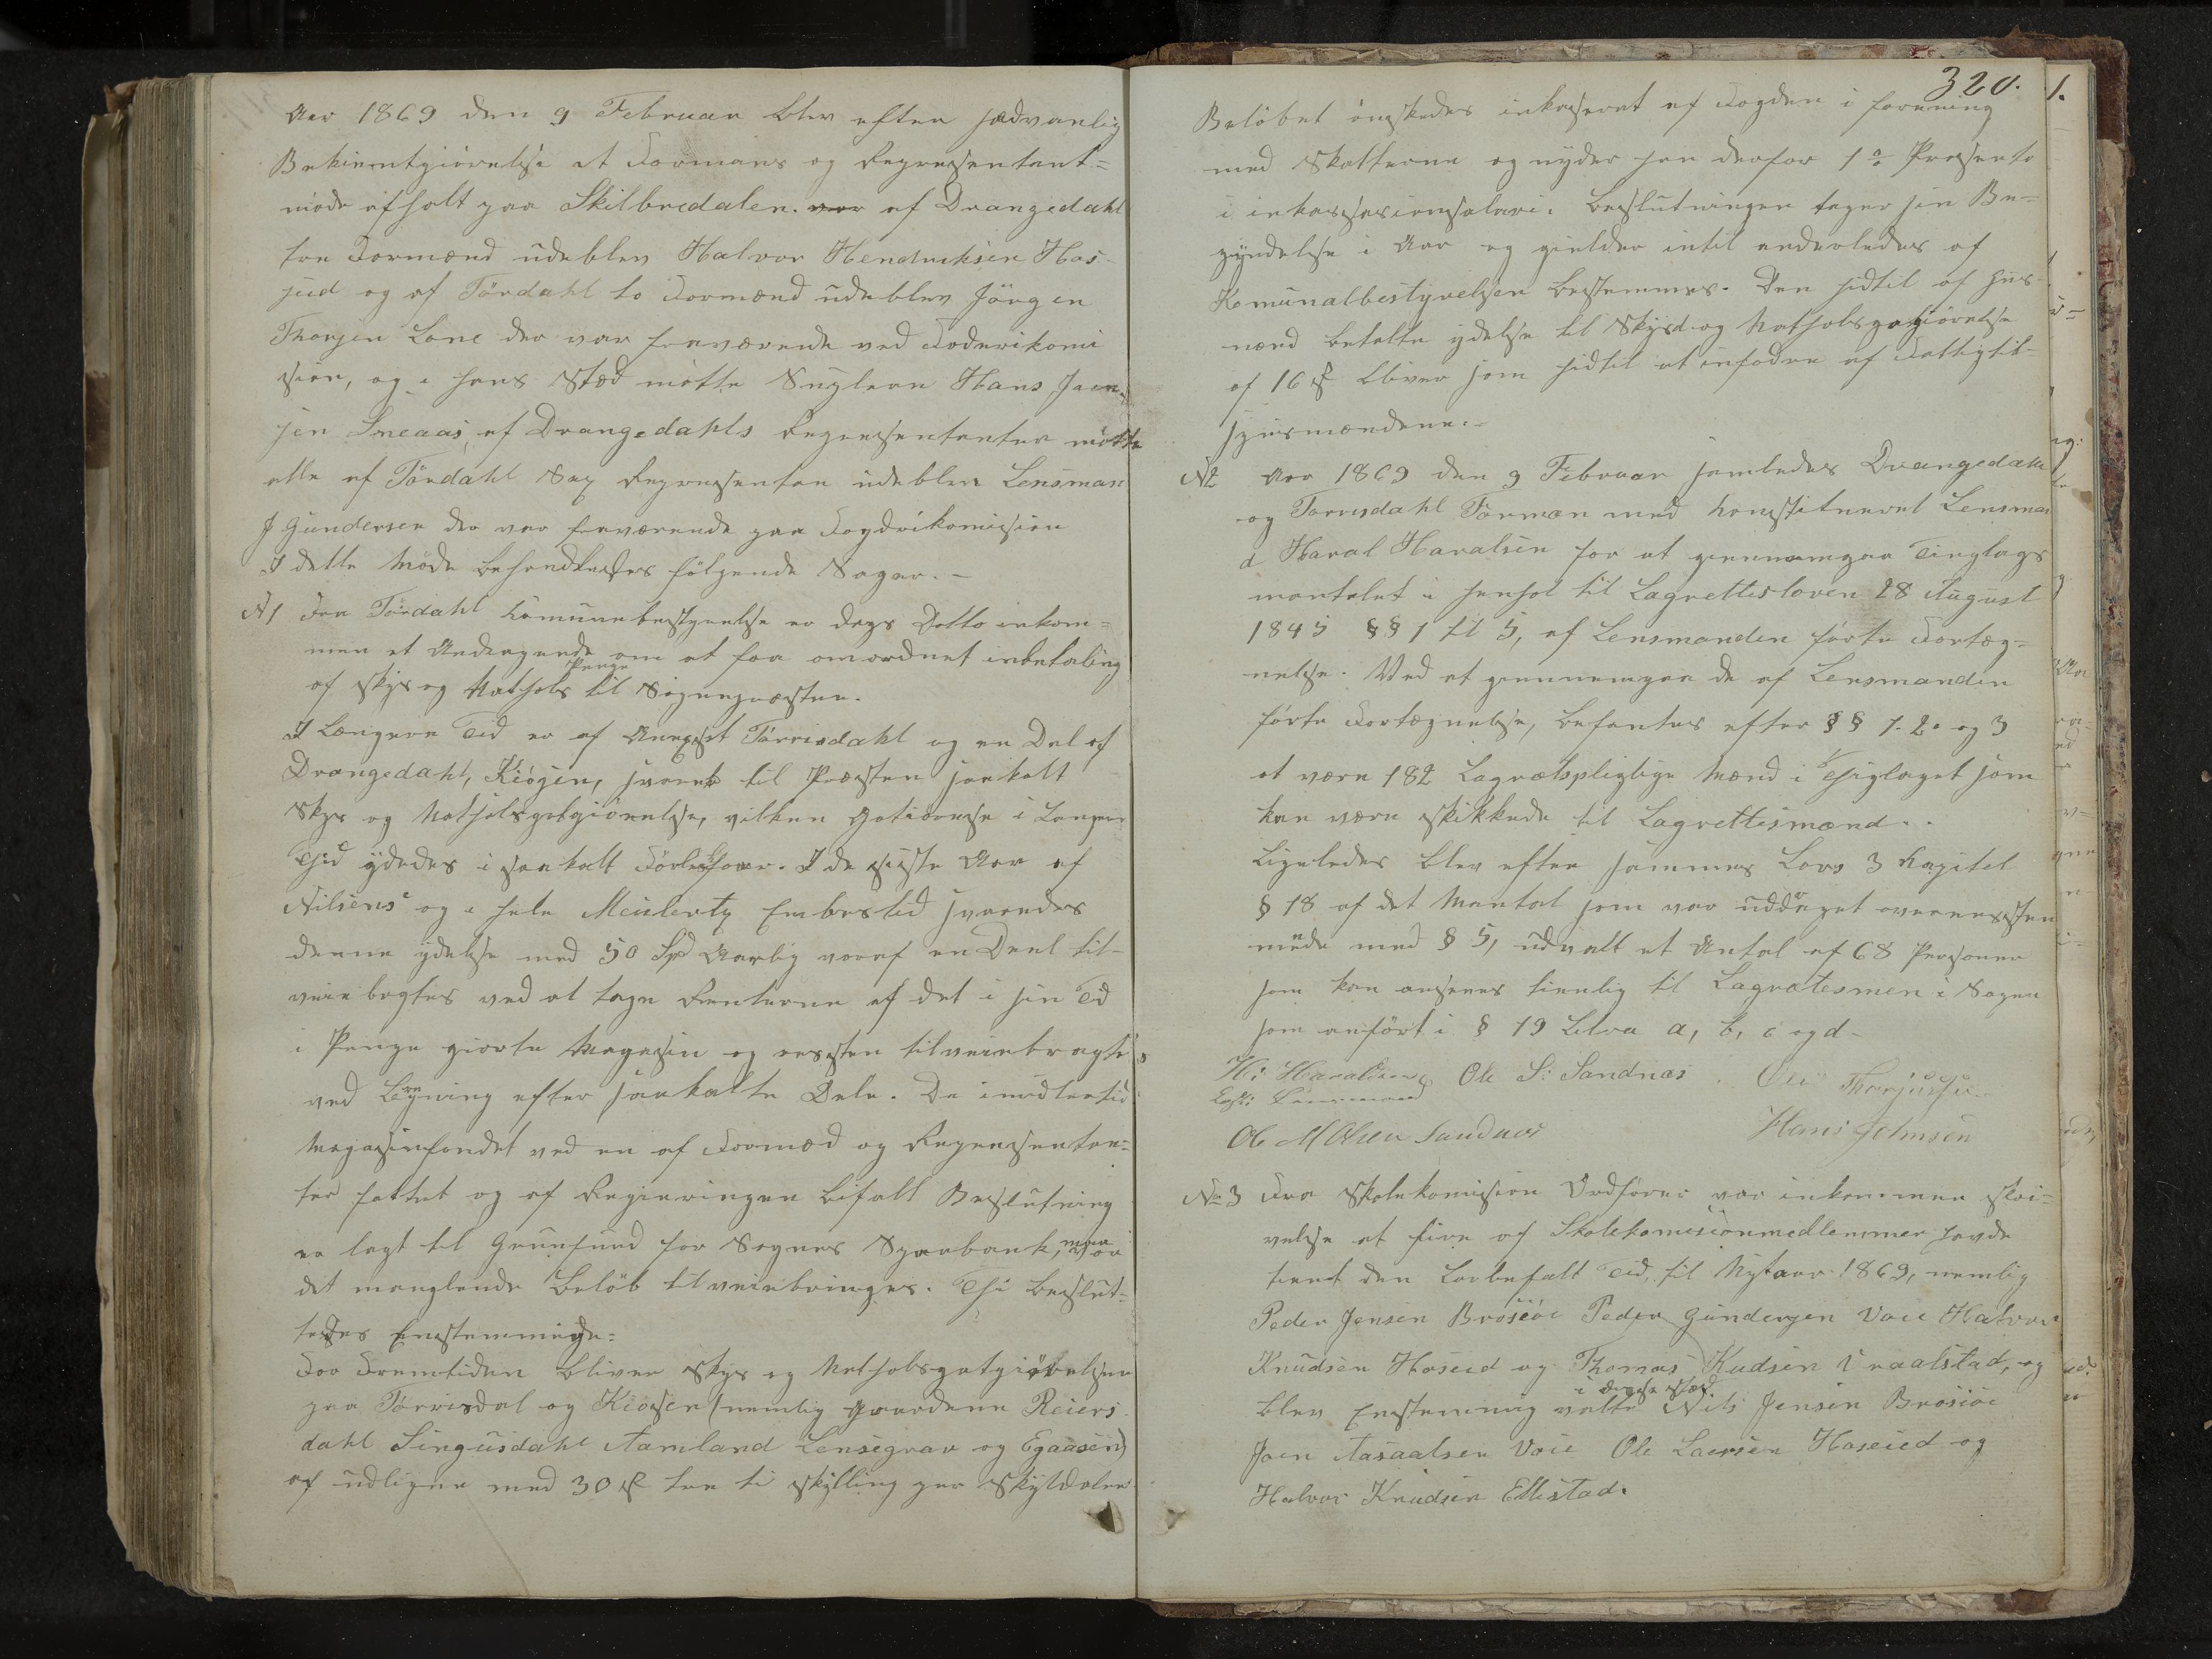 Aar 1869 den 9 Februar blev efter sædvanlig
Bekientgiørelse et Formans og Represententant=
møde afholt paa Skilbredalen. af Drangedahl
tre Formænd udeblev Halvor Hendriksen Hos-
jud og af Tördahl to Formænd udeblev Jörgen
Thorjen Lone der var fraværende ved Foderikomi
sion, og i hans Stæd mötte Supleon Hans Jaen-
sen Sneaas, af Drangedahls Representanter mötte
alle af Tördahl Sex Represententer udeblev Lensman
J Gundersen der var fraværende paa Fogdrikomision
I dette Møde behandledes følgende Sager. -
N 1 Fra Tördahl Komunebestyrelse er dags Datto inkom=
men et Andragende om at faa omordnet inbetaling
Penge
af skys og Nathols til Sognepræsten.
I Længere Tid er af Annexet Törrisdahl og en Del af
Drangedahl, Kiösen, svaret til Præsten saakalt
Skys og Natholsgotgiörelse, vilken Gotiörelse i Længere
Tid ydedes i saakalt. I de siste Aar af
Nilsens og i hele Meilerty Embestid svaredes
denne ydelse med 50 Spd Aarlig voraf en Deel til-
veiebragtes ved at tage Renterne af det i sin Tid
i Penge giorte Magasin og resten tilveiebragtes
ved Ligning efter saakalte Dele. Da imidlertid
Magasinfondet ved en af Formæd og Represententan=
ter fattet og af Regieringen bifalt Beslutning
er lagt til Grunfund for Sognes Sparbank, maa
det manglende Beløb tilveiebringes. Thi beslut=
tedes Enstemmig:
For Fremtiden bliver Skys og Natholsgotgiörelsen
paa Törrisdal og Kiosen (nemlig Gaardene Reiers
dahl Singusdahl Aamland Lensegrav og Egaasen)
at udligne med 30 s tre ti skilling per Skyldaler
320.
Beløbet ønskedes inkaseret af Fogden i forening
med Skatterne og nyder han derfor 1 Prosento
i inkassasionsalari. Beslutningen tager sin Be-
gyndelse i Aar og gielder intil anderledes af
Komunalbestyrelsen bestemmes. Den hidtil af Hus-
mænd betalte ydelse til Skyds og Natholsgotgiörelse
af 16 s bliver som hidtil at infodre af Fattigtil-
synsmændene. -
N 2 Aar 1869 den 9 Februar samledes Drangedahl
og Torrisdahl Förmæn med konstitueret Lensman
d Haral Haralsen for at gennemgaa Tinglags
mantalet i henhol til Lagrettesloven 28 August
1845 §§ 1 til 5, af Lensmanden förte Fortæg=
nelse. Ved at gennemgaa de af Lensmanden
förte Fortægnelse, befantes efter §§ 1. 2. og 3
at være 182 Lagrætspligtige Mænd i Thiglaget som
kan være skikkede til Lagrettesmænd..
Ligeledes blev efter sammes Lovs 3 Kapitel
§ 18 af det Mantal som var uddraget overensstem
mede med § 5, udvalt et Antal af 68 Personer
som kan ansees tienlig til Lagratesmen i Sager
som anfört i § 19 Litra a, b, c og d-
H: Haralsen Ole S: Sandnæs Ole Thorjussen
Lensmand
Ole M Olsen Sandnæs Hans Johnsen
No 3 Fra Skolekomision Ordförer var inkommen skri=
velse at fire af Skolekomisionmedlemmer havde
tient den lovbefalt Tid, til Nytaar 1869, nemlig
Peder Jensen Brösiöe Peder Gundersen Voie Halvor
Knudsen Hoseid og Thomas Kudsen Vraalstad, og
i deres Stæd
blev Enstemmig valte Nils Jensen Brosiöe
Joen Aasaalsen Voie Ole Laersen Hoseied og
Halvor Knudsen Ellestad.